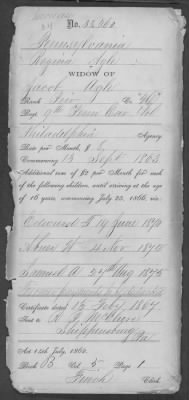 No. 88,360
Pennsylvania
Regina Ugle
WIDOW OF
Jacob Ugle
Rank Priv Co. "H"
Regt 9th Penn Cav Vol
Philadelphia Agency
Rate per Month, $ 8
Commencing 13 Sept 1863
Additional sum of $2 per Month for each
of the following children, until arriving at the age
of 16 years, commencing July 25, 1866, viz:
Edward F 19 June 1870
4 Nov 1874
Samuel A 27th Aug 1875
Certificate dated 13 Feby 1867
Sent to
Shippensburg
Pa
Act 14th July, 1862.
Book B Vol. 5 Page 1
Finch Clerk.